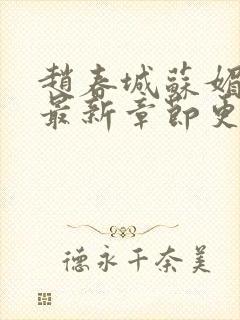 趙春城蘇媚
最新章節更
德永千奈美